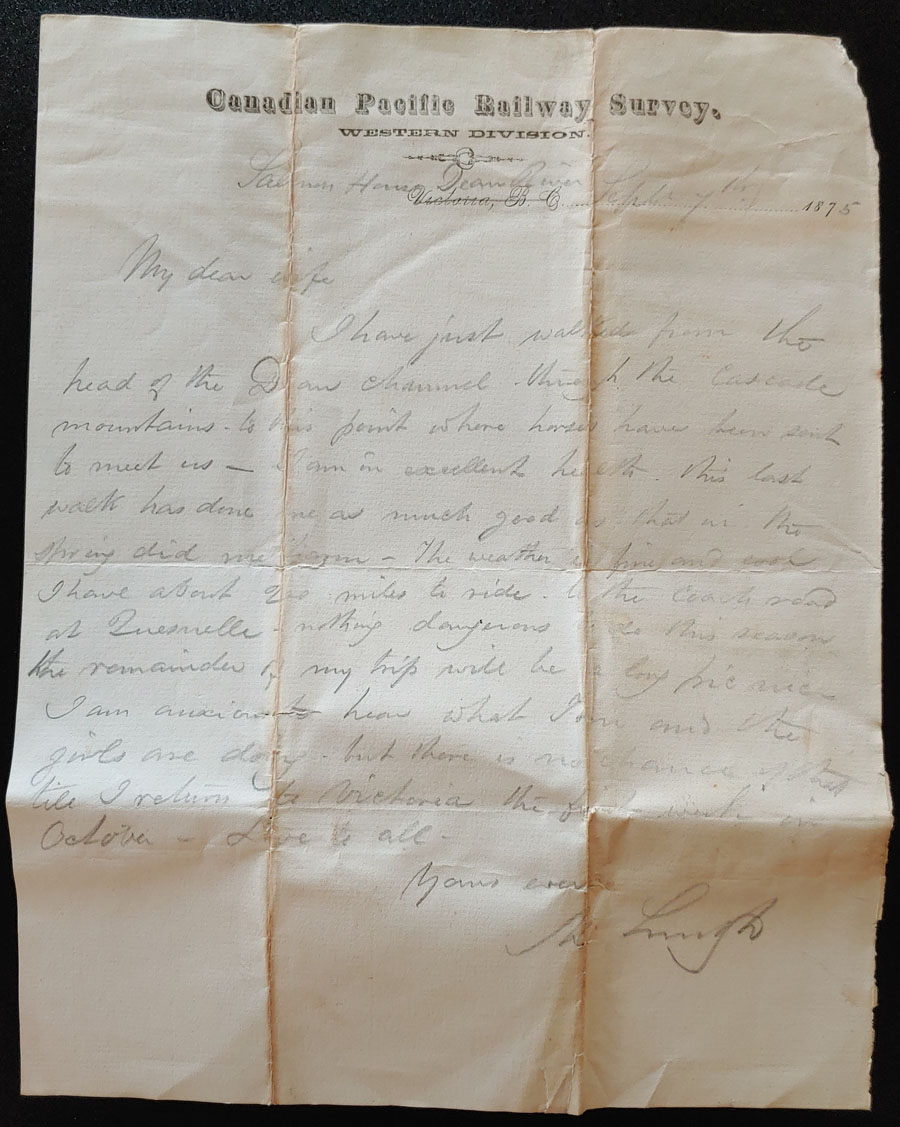 Canadian Pacific Railway Survey.
WESTERN DIVISION.
Salmon House Dean River
Victoria, B. C. Sept. 7th 1875
My dear wife
I have just walked from the
head of the Dean channel through the Cascade
mountains - to this point where horses have been sent
to meet us — I am in excellent health. this last
walk has done me as much good as that in the
spring did me harm - The weather is fine and cool
I have about 200 miles to ride - to the Coach road
at Quesnelle - nothing dangerous so this season
the remainder of my trip will be a long pic nic
I am anxious to hear what Tom and the
girls are doing - but there is no chance of that
till I return to Victoria the first week in
October - Love to all -
Yours ever